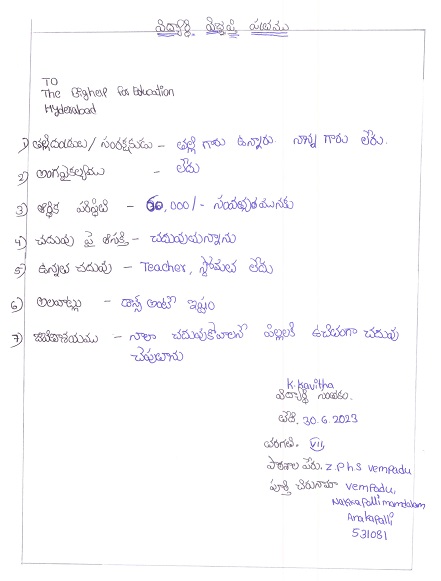 విద్యార్థి విజ్ఞప్తి పత్రము
TO
The Highel For Education
Hyderabad
1) తల్లిదండ్రులు/ సంరక్షకుడు - తల్లి గారు ఉన్నారు. నాన్న గారు లేరు.
2) అంగవైకల్యము - లేదు
3) ఆర్థిక పరిస్థితి - 60,000/- సంవత్సరమునకు
4) చదువు పై ఆసక్తి - చదువుతున్నాను
5) ఉన్నత చదువు - Teacher, స్తోమత లేదు
6) అలవాట్లు - డాన్స్ అంటే ఇష్టం
7) జీవితాశయము - నాలా చదువుకోవాలనే పిల్లలకి ఉచితంగా చదువు
చెప్పుతాను
K. Kavitha
విద్యార్థి సంతకం.
తేది. 30.6.2023
తరగతి. VII,
పాఠశాల పేరు. Z.P.H.S vempadu
పూర్తి చిరునామా vempadu,
Nakkapalli mamdalam
Anakapalli
531081